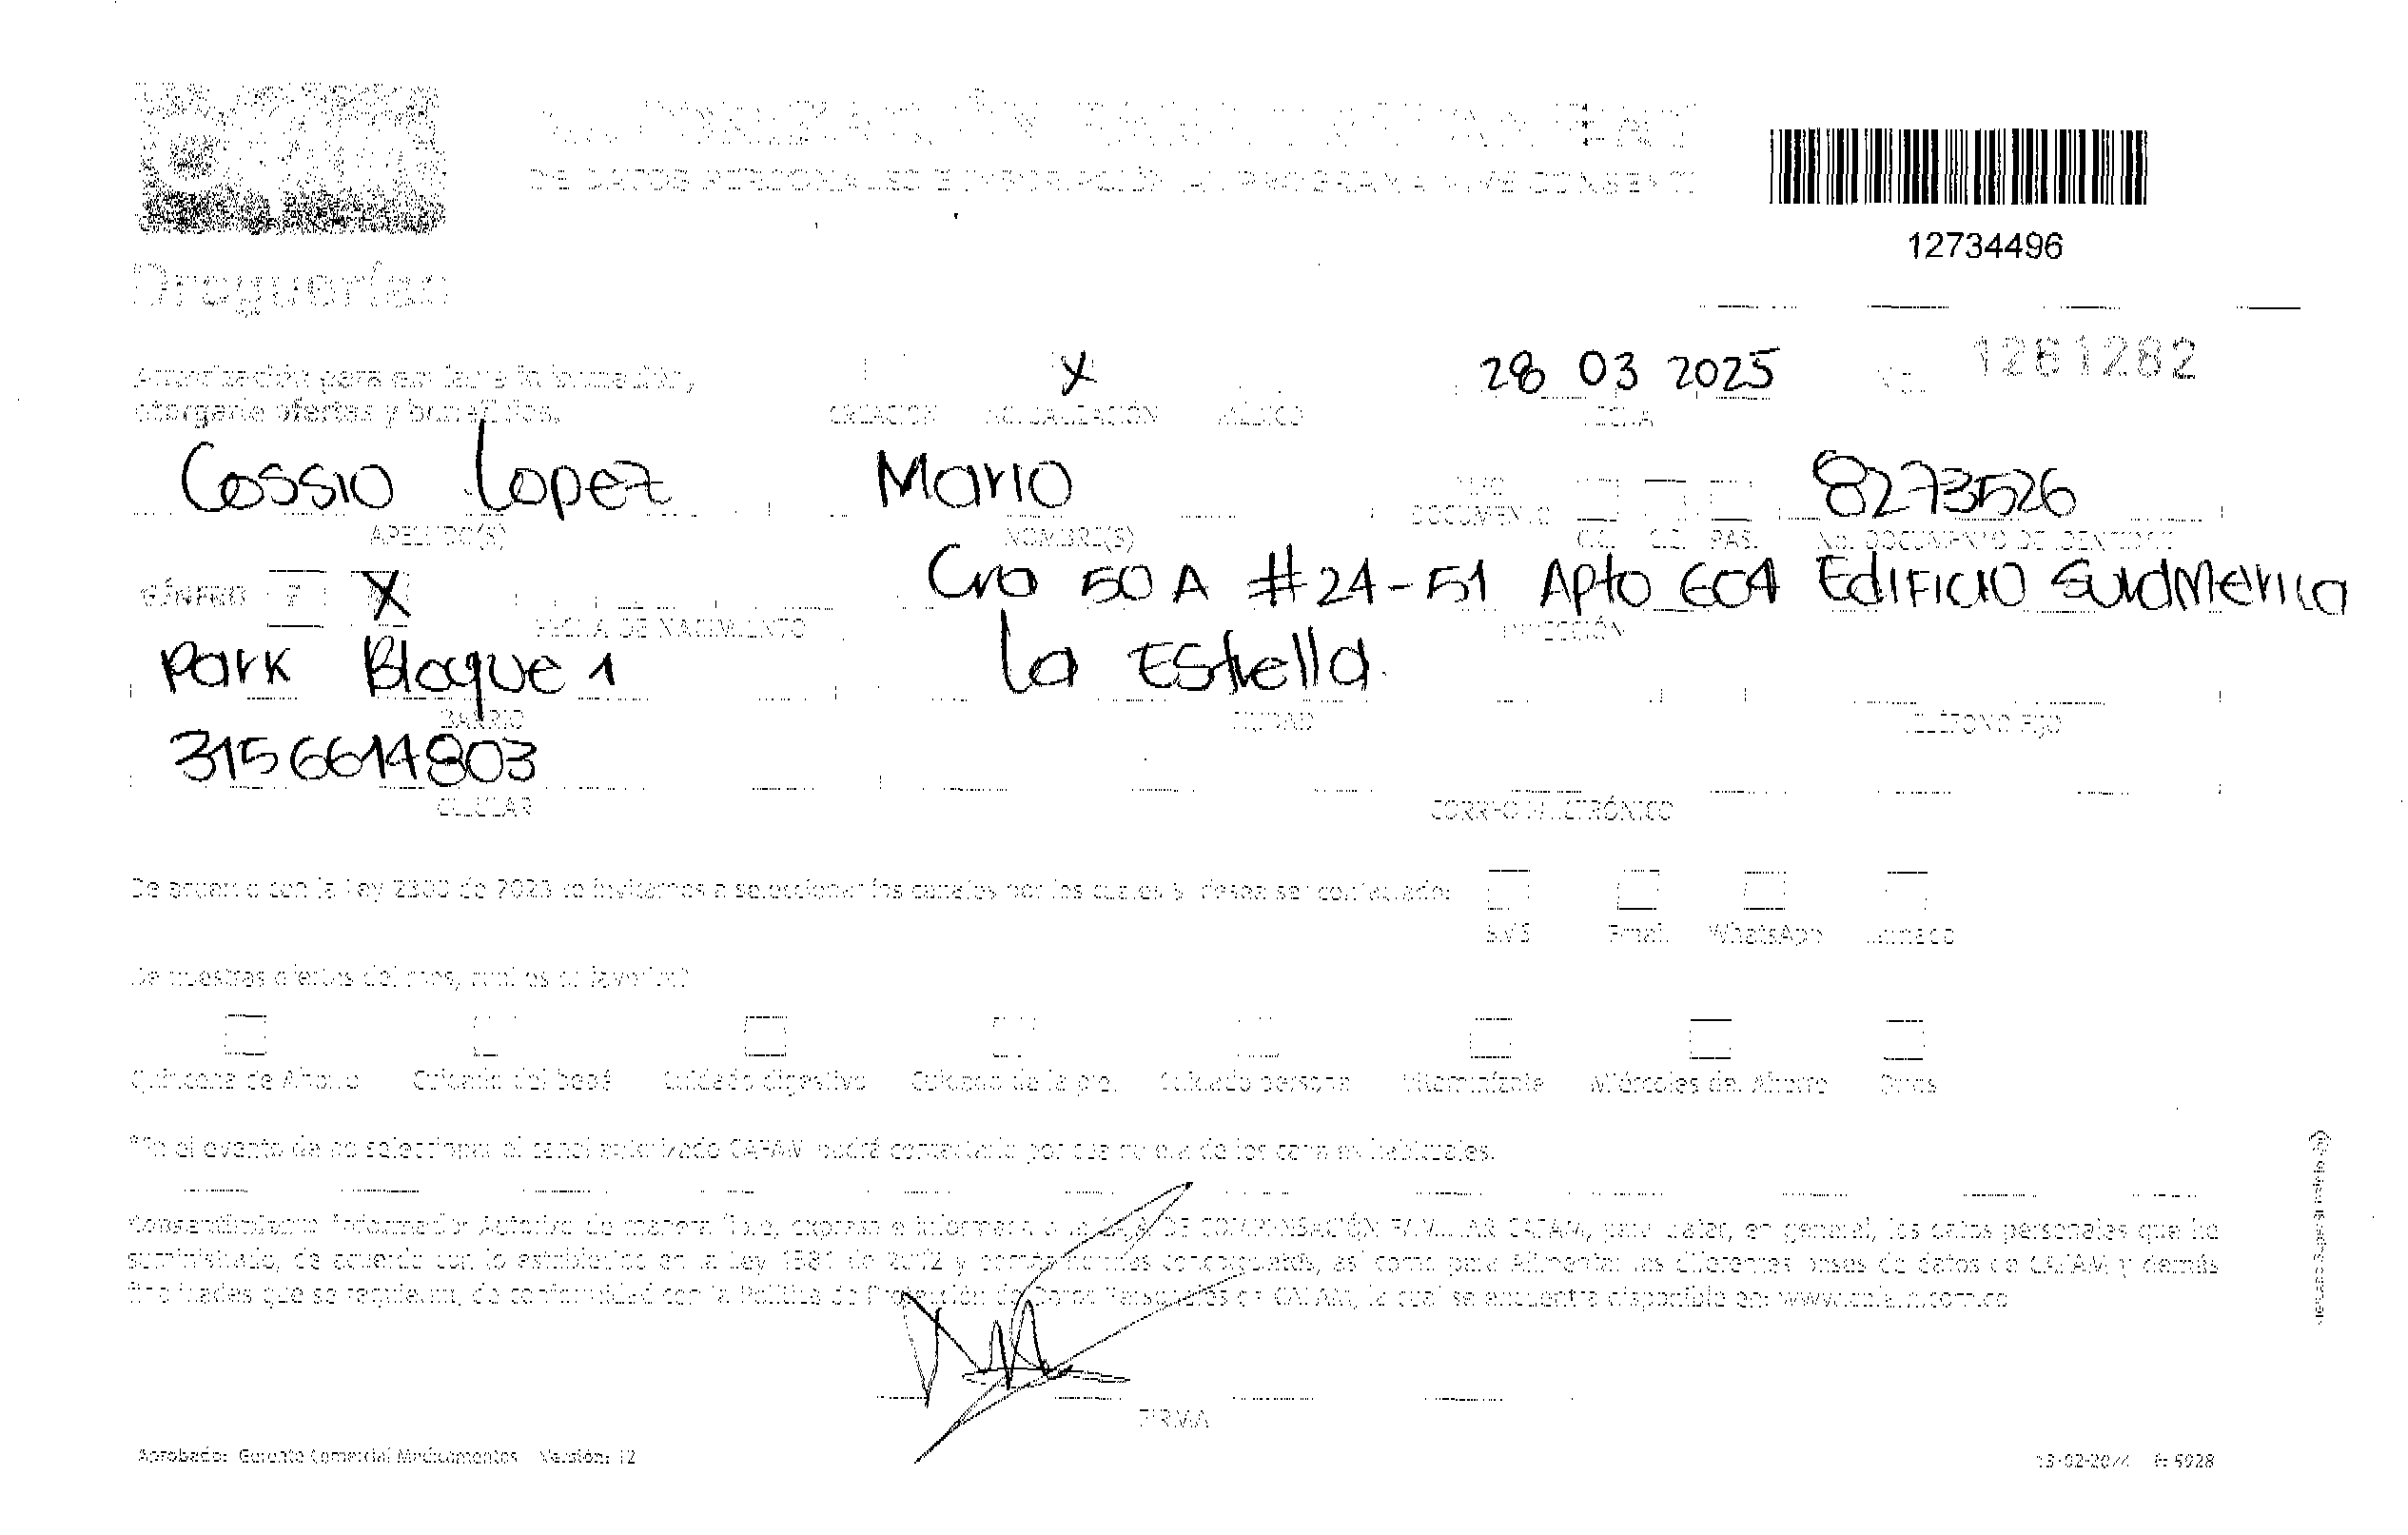 DE DATOS PERSONALES E INSCRIPCIÓN AL PROGRAMA VIVE CONSENTI
12734496
Droguerías
Autorización para enviarle información,
otorgarle ofertas y beneficios.
X
28 03 2025
No. 1261282
CREACIÓN ACTUALIZACIÓN MÉDICO FECHA
Cossio Lopez Mario 8273526
TIPO DOCUMENTO
APELLIDO(S) NOMBRE(S) C.C. C.E. PAS. No. DOCUMENTO DE IDENTIDAD
GÉNERO F X Cra 50 A #24-51 Apto 604 Edificio Surdmerica
FECHA DE NACIMIENTO DIRECCIÓN
Park Bloque 1 La Estrella.
BARRIO CIUDAD TELÉFONO FIJO
3156614803
CELULAR CORREO ELECTRÓNICO
De acuerdo con la Ley 2300 de 2023 te invitamos a seleccionar los canales por los cuales desea ser contactado:
SMS Email WhatsApp Llamada
De nuestras ofertas del mes, cuál es su favorita?
Quincena de Ahorro Cuidado del bebé Cuidado digestivo Cuidado de la piel Cuidado personal Vitamínízate Miércoles del Ahorro Otros
*En el evento de no seleccionar el canal autorizado CAFAM podrá contactarlo por cualquiera de los canales habituales.
Consentimiento Informado: Autorizo de manera libre, expresa e informada a la CAJA DE COMPENSACIÓN FAMILIAR CAFAM, para tratar, en general, los datos personales que he
suministrado, de acuerdo con lo establecido en la Ley 1581 de 2012 y demás normas concordantes, así como para alimentar las diferentes bases de datos de CAFAM y demás
finalidades que se requieran, de conformidad con la Política de Protección de Datos Personales de CAFAM, la cual se encuentra disponible en: www.cafam.com.co
FIRMA
Aprobado: Gerente Comercial Medicamentos Versión: 12
13-02-2024 F: 5928